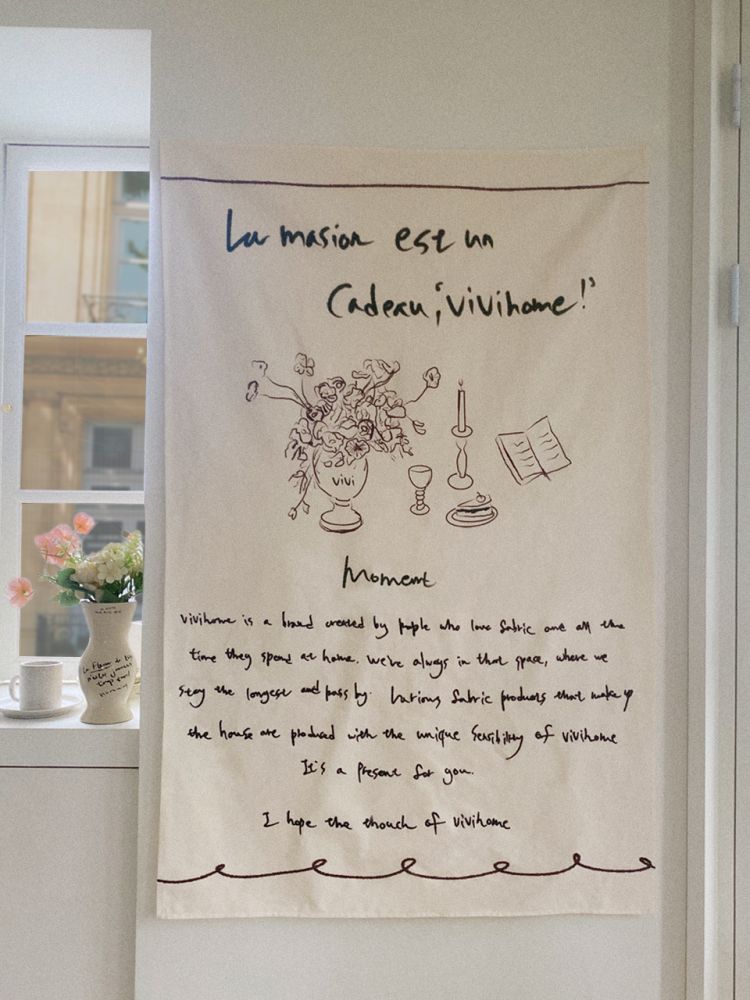 La masion est un
Cadeau, "vivihome!"
vivi
Moment
vivihome is a brand created by people who love fabric and all the
time they spend at home. We're always in that space, where we
stay the longest and pass by. Various fabric products that make up
the house are produced with the unique sensibility of vivihome
It's a present for you.
I hope the thouch of vivihome
La Fleur de